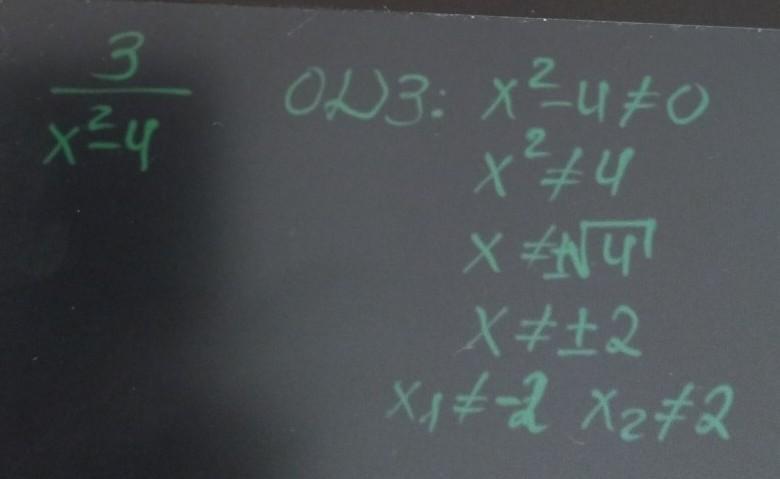 3/(x²-4) ОДЗ: x²-4≠0
x²≠4
x≠±√4
x≠±2
x₁≠-2 x₂≠2